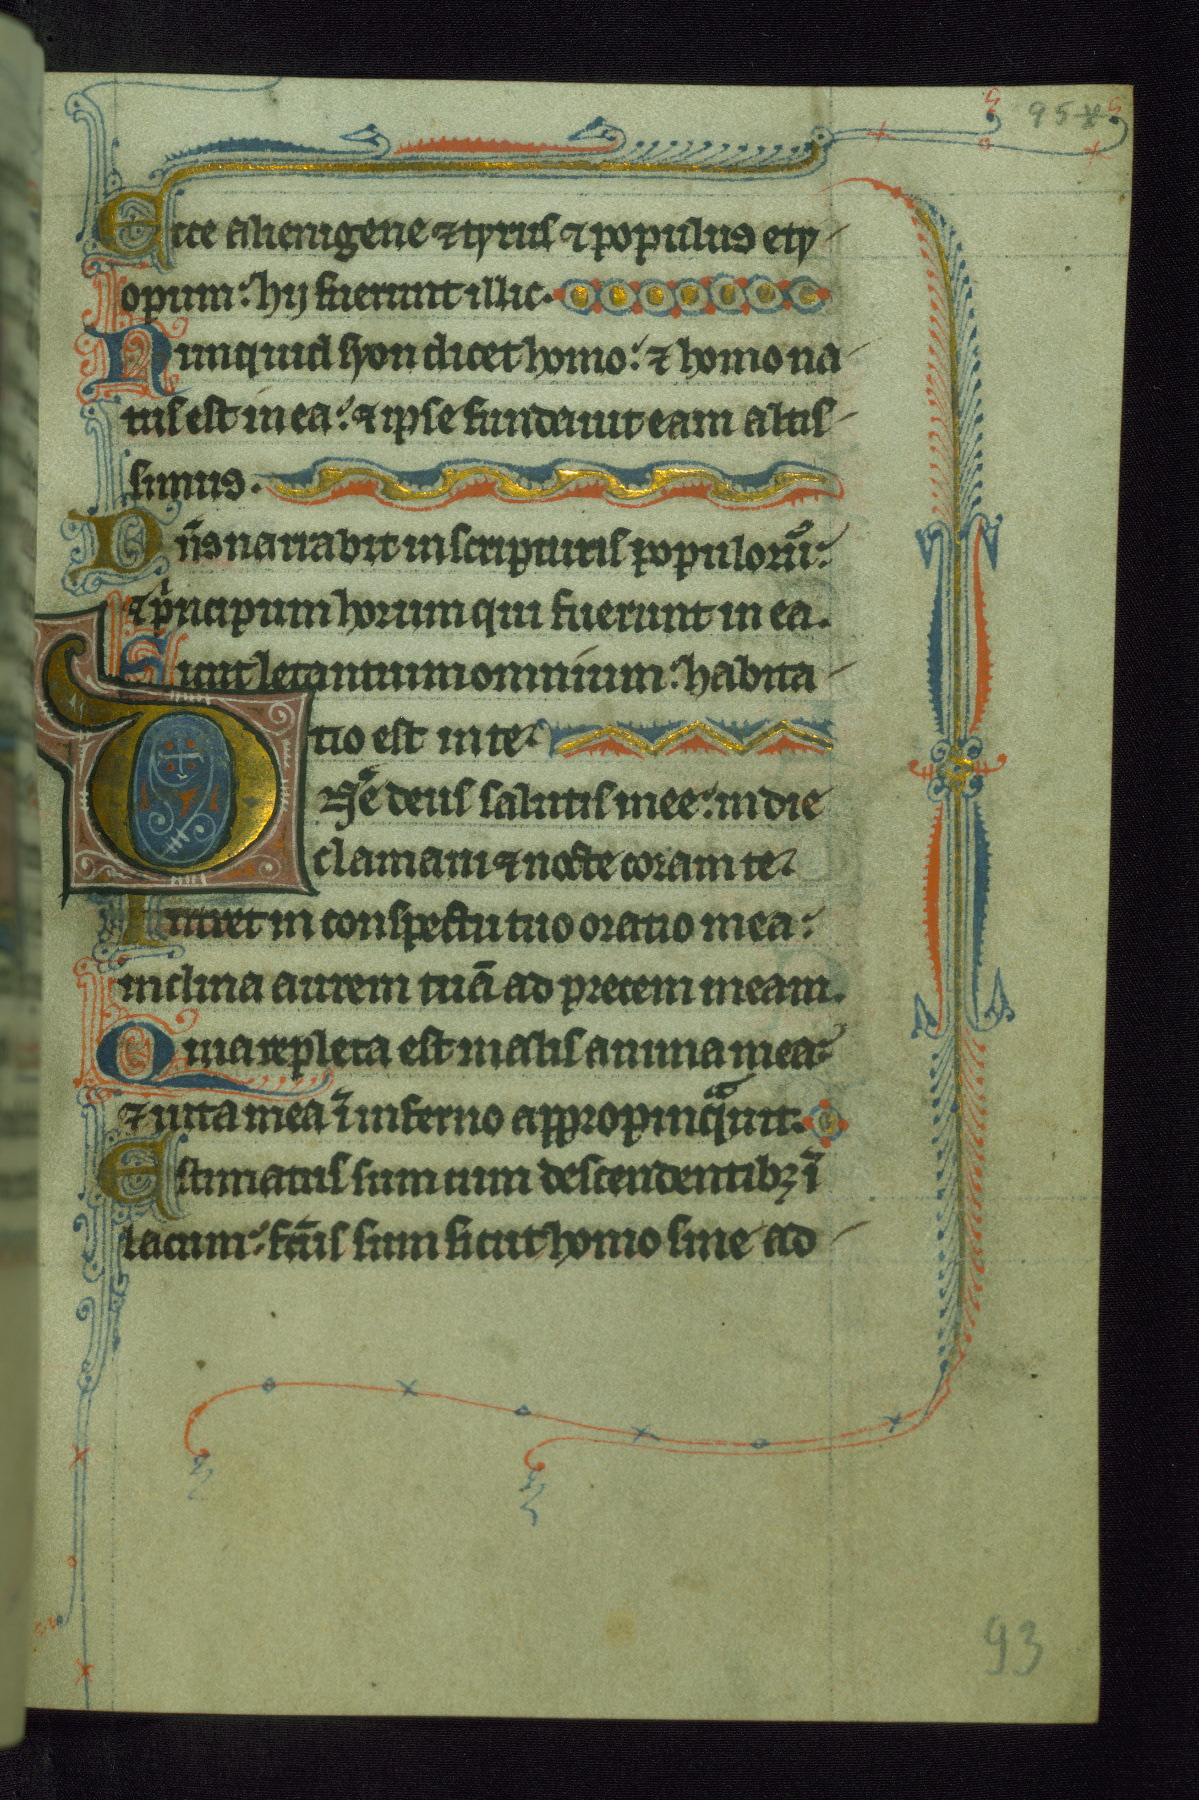 95
Ecce alienigene ⁊ tyrus ⁊ populus ety
opum: hij fuerunt illic.
Nunquid syon dicet homo: ⁊ homo na
tus est in ea: ⁊ ipse fundauit eam altis
simus.
Dn̄s narrabit in scripturis populoꝝ:
⁊ pⁱncipum horum qui fuerunt in ea.
Sicut letantium omnium: habita
tio est in te.
Dn̄e deus salutis mee: in die
clamaui ⁊ nocte coram te.
Intret in conspectu tuo oratio mea:
inclina aurem tuā ad precem meam.
Quia repleta est malis anima mea:
⁊ uita mea ī inferno appropinqᵃuit.
Estimatus sum cum descendentibꝫ ī
lacum: fc̄us sum sicut homo sine ad
93